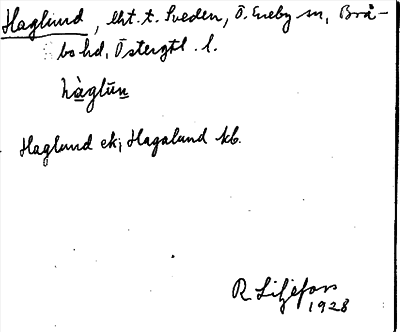 Haglund, lht. t. Sveden, Ö. Eneby sn, Brå-
bo hd, Östergtl. l.
hàglūn
Haglund ek; Hagalund kb.
R. Liljefors
1928